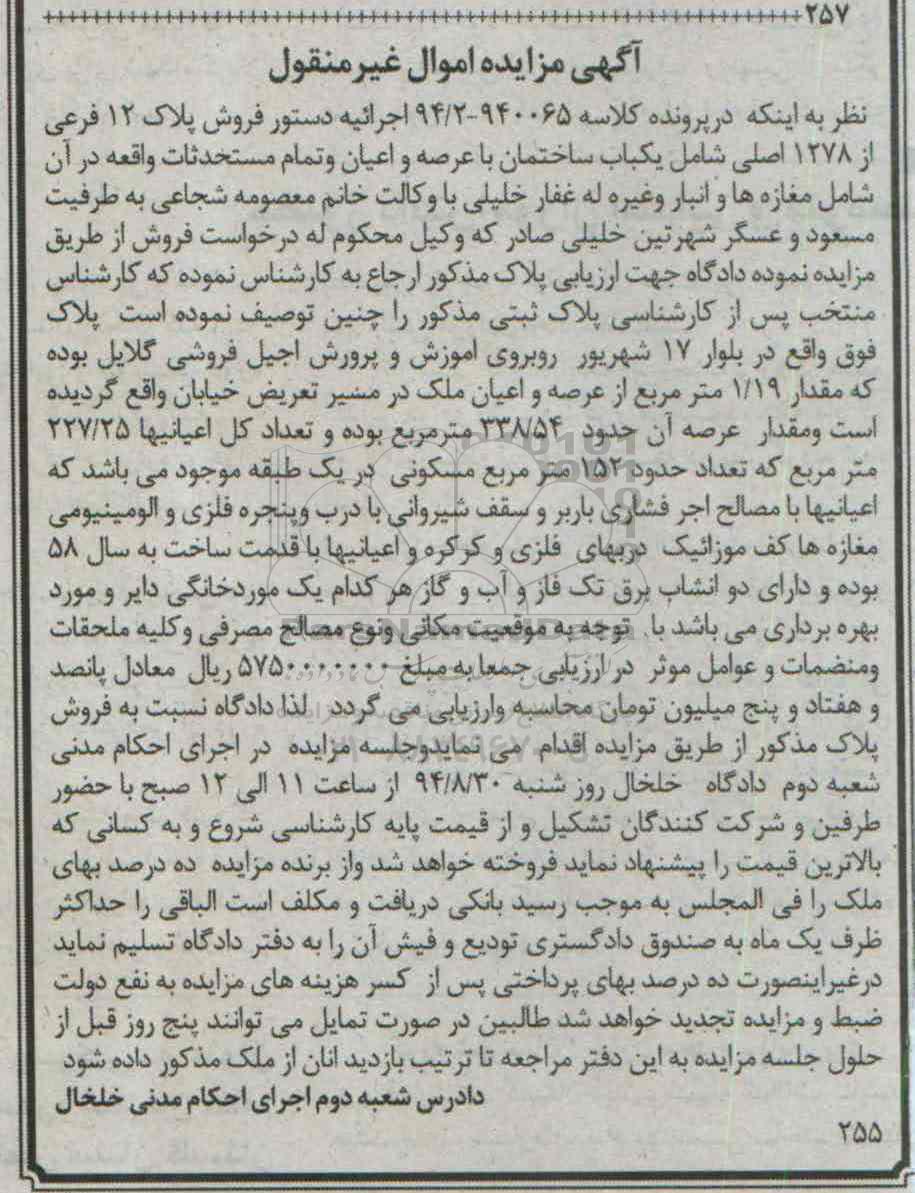 ۲۵۷
آگهی مزایده اموال غیرمنقول
نظر به اینکه درپرونده کلاسه ۹۴۰۰۶۵-۹۴/۲ اجرائیه دستور فروش پلاک ۱۲ فرعی
از ۱۲۷۸ اصلی شامل یکباب ساختمان با عرصه و اعیان وتمام مستحدثات واقعه در آن
شامل مغازه ها و انبار وغیره له غفار خلیلی با وکالت خانم معصومه شجاعی به طرفیت
مسعود و عسگر شهرتین خلیلی صادر که وکیل محکوم له درخواست فروش از طریق
مزایده نموده دادگاه جهت ارزیابی پلاک مذکور ارجاع به کارشناس نموده که کارشناس
منتخب پس از کارشناسی پلاک ثبتی مذکور را چنین توصیف نموده است پلاک
فوق واقع در بلوار ۱۷ شهریور روبروی اموزش و پرورش اجیل فروشی گلایل بوده
که مقدار ۱/۱۹ متر مربع از عرصه و اعیان ملک در مسیر تعریض خیابان واقع گردیده
است ومقدار عرصه آن حدود ۳۳۸/۵۴ مترمربع بوده و تعداد کل اعیانیها ۲۲۷/۲۵
متر مربع که تعداد حدود ۱۵۲ متر مربع مسکونی در یک طبقه موجود می باشد که
اعیانیها با مصالح اجر فشاری باربر و سقف شیروانی با درب وپنجره فلزی و الومینیومی
مغازه ها کف موزائیک دربهای فلزی و کرکره و اعیانیها با قدمت ساخت به سال ۵۸
بوده و دارای دو انشاب برق تک فاز و آب و گاز هر کدام یک موردخانگی دایر و مورد
بهره برداری می باشد با. توجه به موقعیت مکانی ونوع مصالح مصرفی وکلیه ملحقات
ومنضمات و عوامل موثر در ارزیابی جمعا به مبلغ ۵۷۵۰۰۰۰۰۰۰ ریال معادل پانصد
و هفتاد و پنج میلیون تومان محاسبه وارزیابی می گردد لذا دادگاه نسبت به فروش
پلاک مذکور از طریق مزایده اقدام می نمایدوجلسه مزایده در اجرای احکام مدنی
شعبه دوم دادگاه خلخال روز شنبه ۹۴/۸/۳۰ از ساعت ۱۱ الی ۱۲ صبح با حضور
طرفین و شرکت کنندگان تشکیل و از قیمت پایه کارشناسی شروع و به کسانی که
بالاترین قیمت را پیشنهاد نماید فروخته خواهد شد واز برنده مزایده ده درصد بهای
ملک را فی المجلس به موجب رسید بانکی دریافت و مکلف است الباقی را حداکثر
ظرف یک ماه به صندوق دادگستری تودیع و فیش آن را به دفتر دادگاه تسلیم نماید
درغیراینصورت ده درصد بهای پرداختی پس از کسر هزینه های مزایده به نفع دولت
ضبط و مزایده تجدید خواهد شد طالبین در صورت تمایل می توانند پنج روز قبل از
حلول جلسه مزایده به این دفتر مراجعه تا ترتیب بازدید انان از ملک مذکور داده شود
دادرس شعبه دوم اجرای احکام مدنی خلخال
۲۵۵